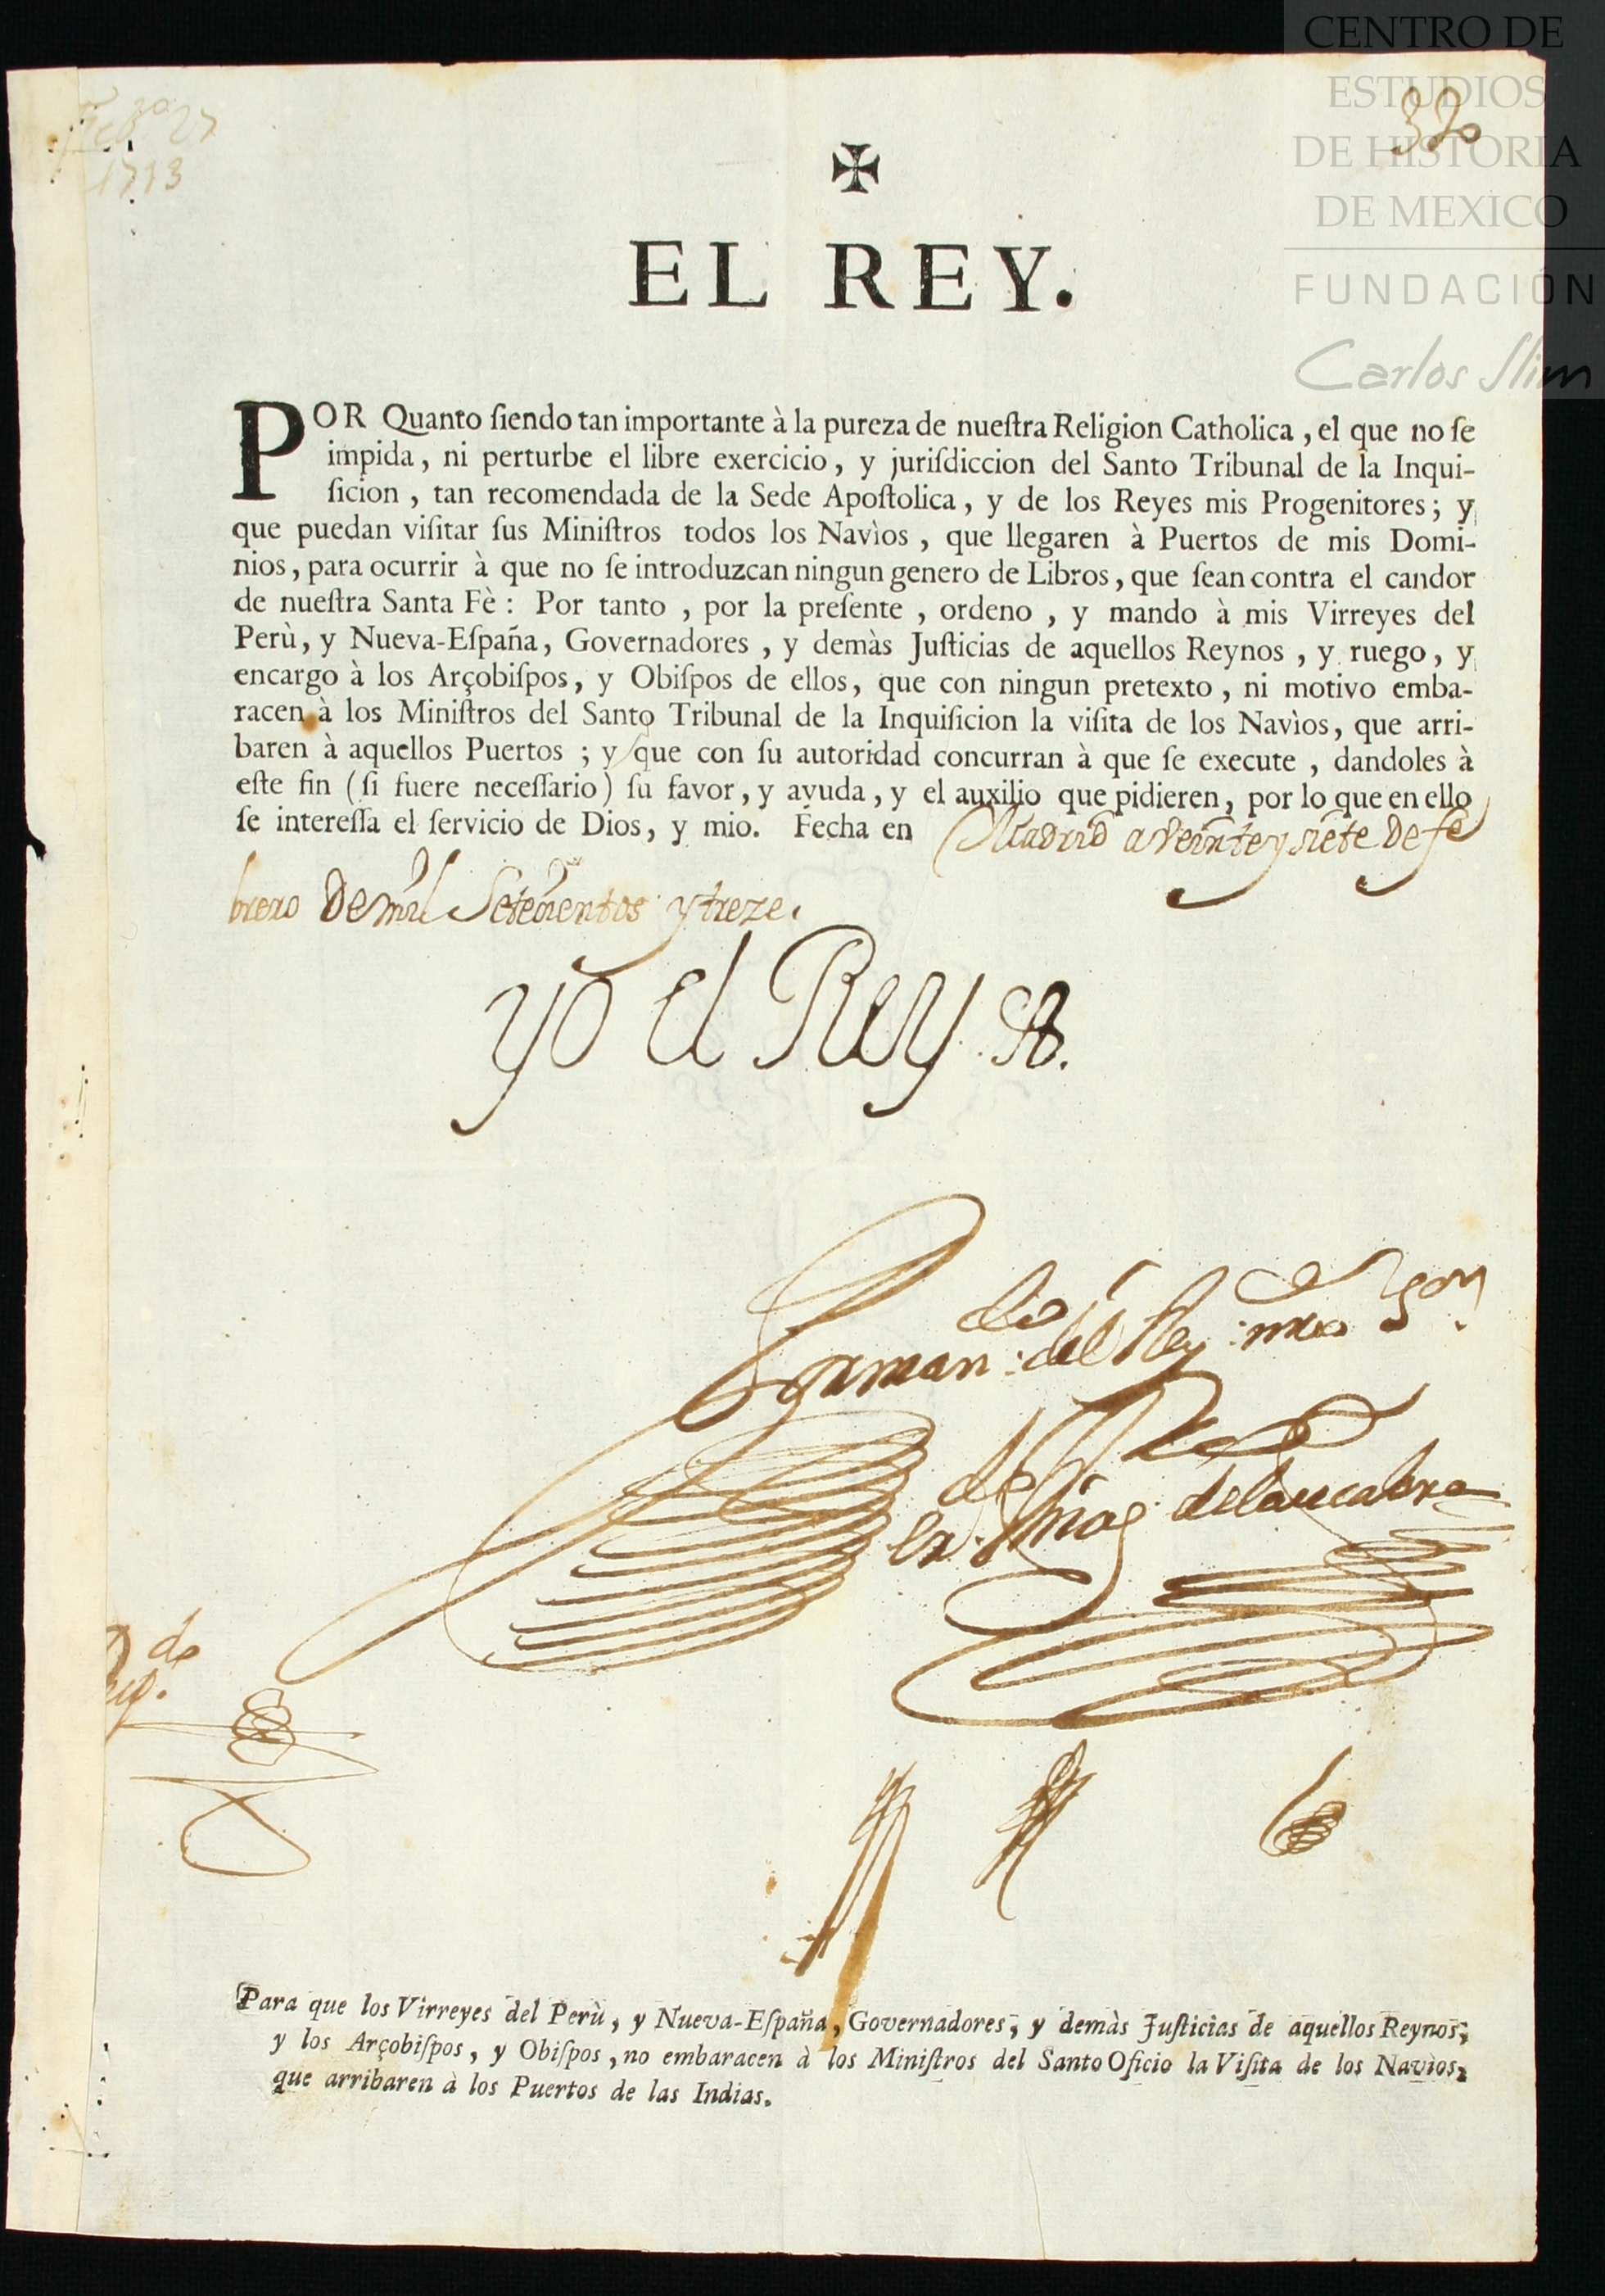 CENTRO DE
ESTUDIOS
DE HISTORIA
DE MEXICO
FUNDACIÓN
Carlos Slim
27
1713
320
✠
EL REY.
POR Quanto ſiendo tan importante à la pureza de nueſtra Religion Catholica, el que no ſe
impida, ni perturbe el libre exercicio, y juriſdiccion del Santo Tribunal de la Inqui-
ſicion, tan recomendada de la Sede Apoſtolica, y de los Reyes mis Progenitores; y
que puedan viſitar ſus Miniſtros todos los Navìos, que llegaren à Puertos de mis Domi-
nios, para ocurrir à que no ſe introduzcan ningun genero de Libros, que ſean contra el candor
de nueſtra Santa Fè: Por tanto, por la preſente, ordeno, y mando à mis Virreyes del
Perù, y Nueva-Eſpaña, Governadores, y demàs Juſticias de aquellos Reynos, y ruego, y
encargo à los Arçobiſpos, y Obiſpos de ellos, que con ningun pretexto, ni motivo emba-
racen à los Miniſtros del Santo Tribunal de la Inquiſicion la viſita de los Navìos, que arri-
baren à aquellos Puertos; y que con ſu autoridad concurran à que ſe execute, dandoles à
eſte fin (ſi fuere neceſſario) ſu favor, y ayuda, y el auxilio que pidieren, por lo que en ello
ſe intereſſa el ſervicio de Dios, y mio. Fecha en Madrid a veinte y siete de fe
brero de mil Setecientos y treze.
yo el Rey
Por man.do del Rey nro Sor.
Para que los Virreyes del Perù, y Nueva-Eſpaña, Governadores, y demàs Juſticias de aquellos Reynos,
y los Arçobiſpos, y Obiſpos, no embaracen à los Miniſtros del Santo Oficio la Viſita de los Navìos,
que arribaren à los Puertos de las Indias.